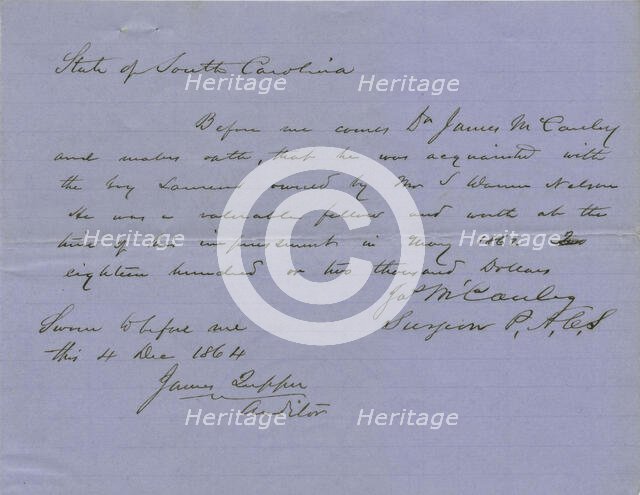 State of South Carolina
Before me comes Dr James McCauley
and makes oath, that he was acquainted with
the boy Laurens owned by Mr S Warren Nelson
He was a valuable fellow and worth at the
time of his impressment in May 186
eighteen hundred or two thousand Dollars
Jas McCauley
Surgeon P. A. C. S
Sworn to before me
this 4 Dec 1864
James Tupper
Auditor
Heritage
Heritage
Heritage
Heritage
Heritage
Heritage
Heritage
Heritage